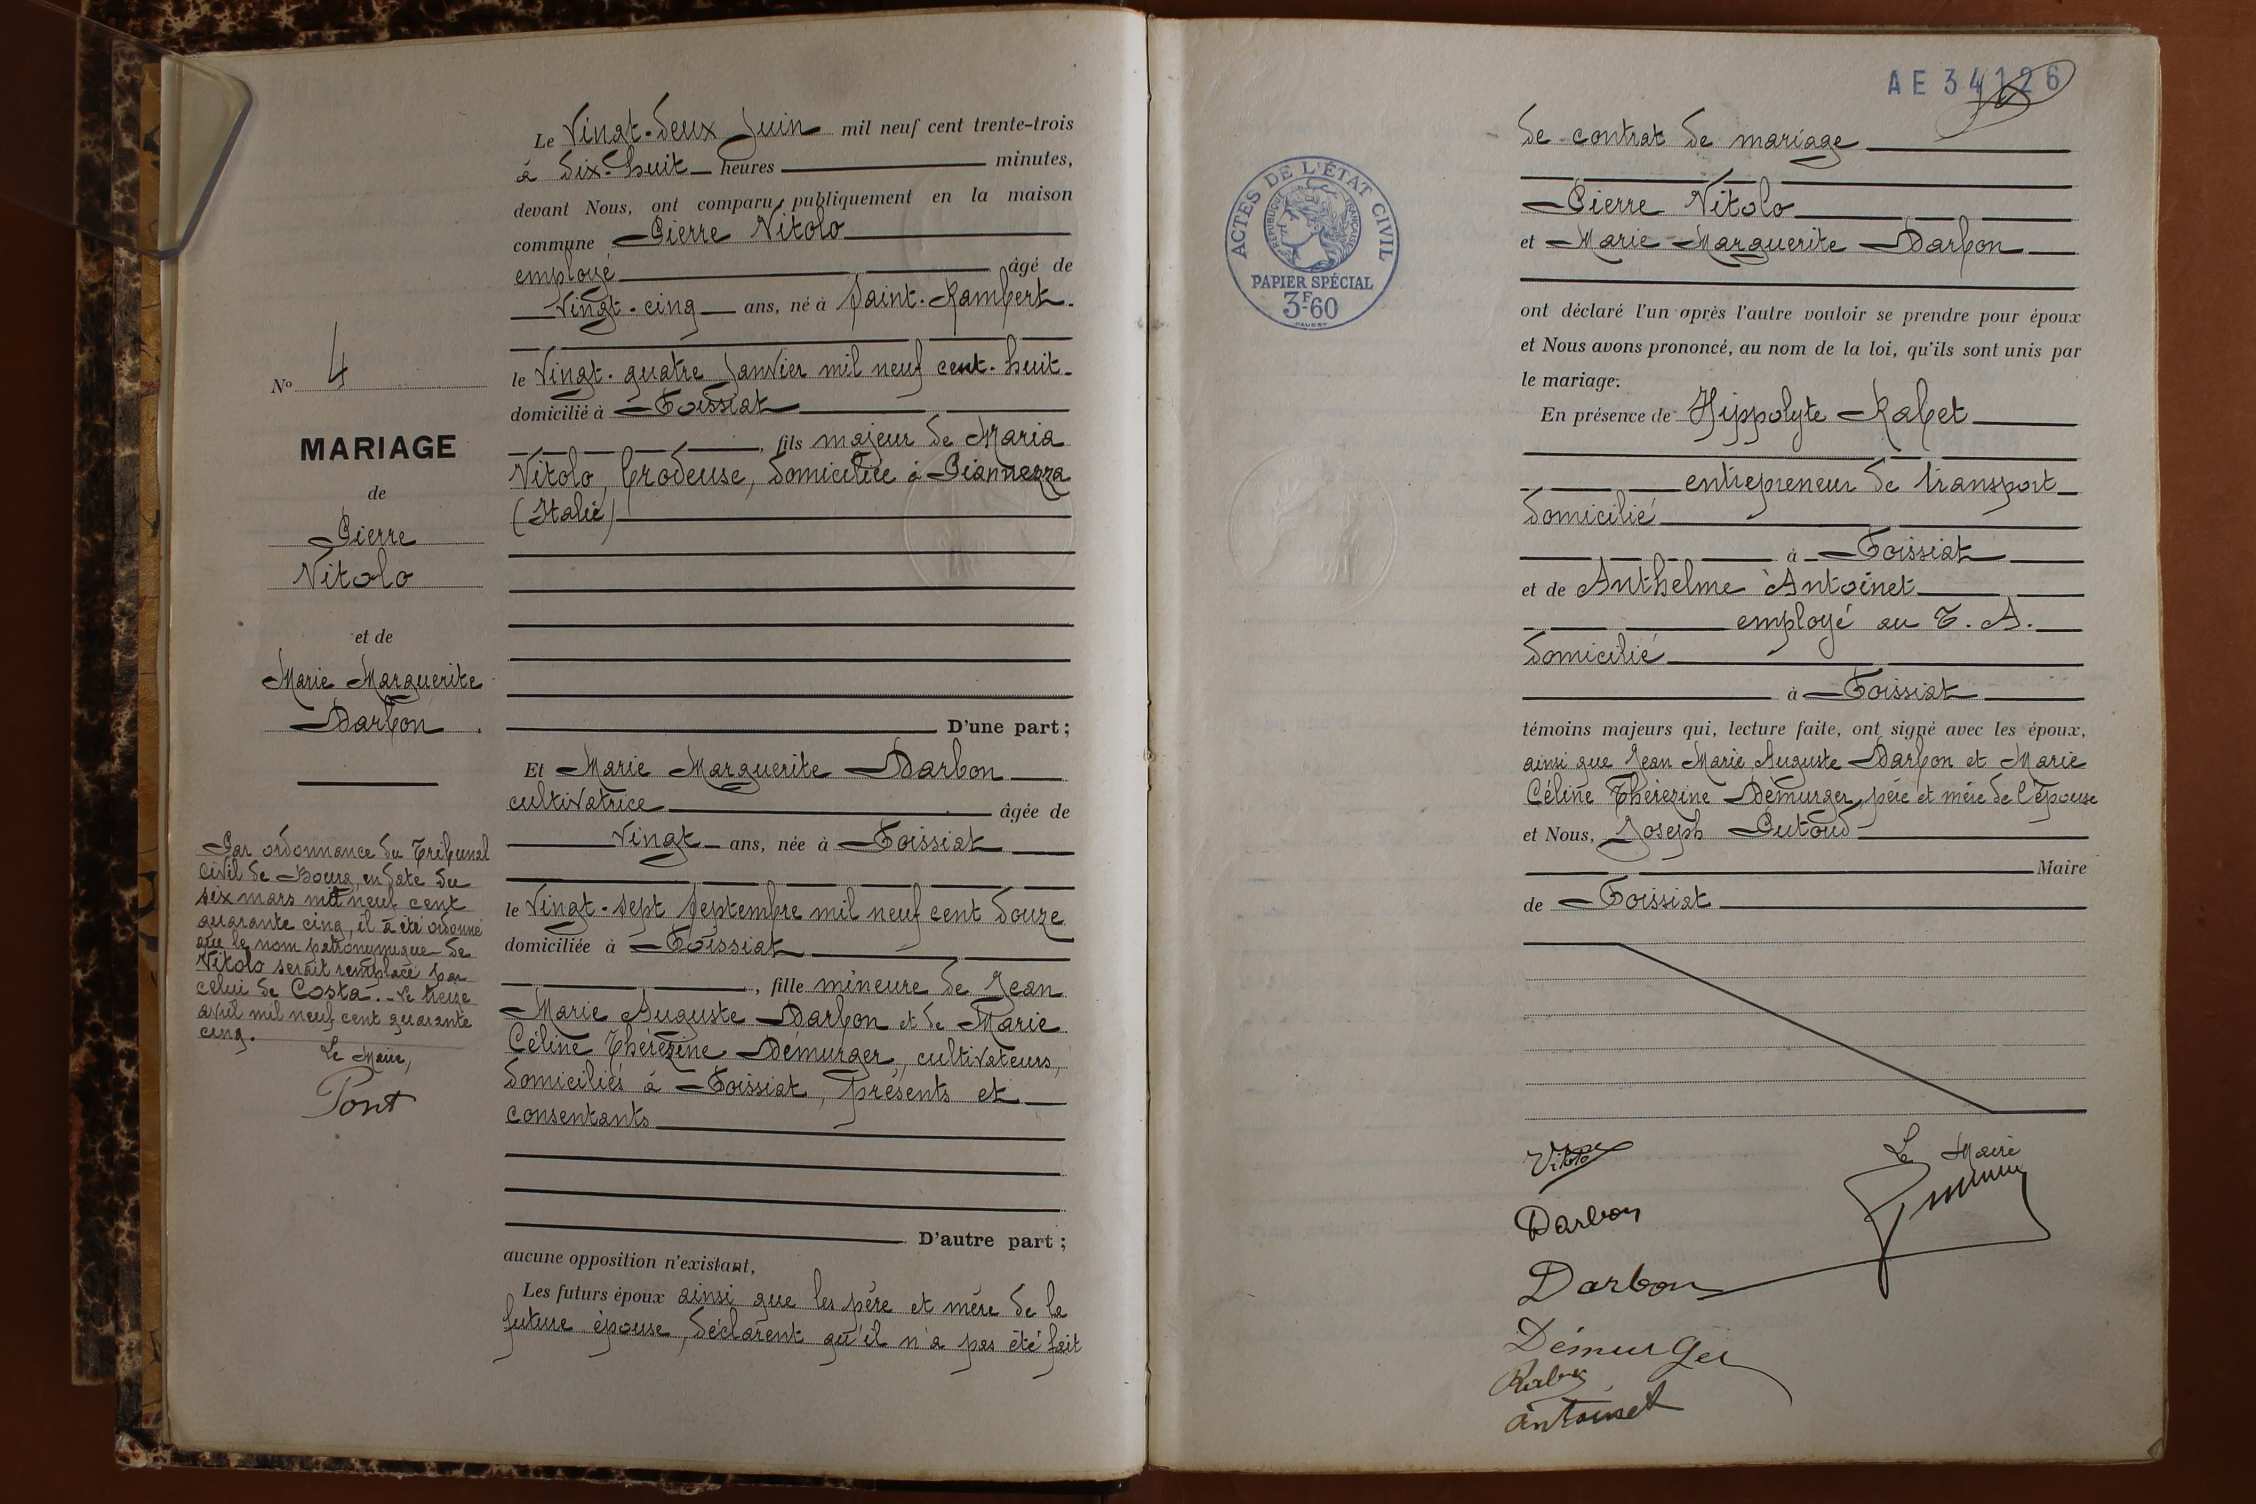 Le Vingt-deux Juin mil neuf cent trente-trois
à dix-huit heures minutes,
devant Nous, ont comparu publiquement en la maison
commune Pierre Vitolo
employé âgé de
vingt-cinq ans, né à Saint-Rambert
le vingt-quatre Janvier mil neuf cent-huit
domicilié à Foissiat
, fils majeur de Maria
Vitolo, brodeuse, domiciliée à Piannezza
(Italie)
D'une part;
Et Marie Marguerite Darbon
cultivatrice âgée de
vingt ans, née à Foissiat
le vingt-sept Septembre mil neuf cent douze
domiciliée à Foissiat
, fille mineure de Jean
Marie Auguste Darbon et de Marie
Céline Thérézine Démurger, cultivateurs,
domiciliés à Foissiat, présents et
consentants
D'autre part;
aucune opposition n'existant,
Les futurs époux ainsi que les père et mère de la
future épouse, déclarent qu'il n'a pas été fait
No 4
MARIAGE
de
Pierre
Vitolo
et de
Marie Marguerite
Darbon.
Par ordonnance du Tribunal
civil de Bourg, en date du
six mars mil neuf cent
quarante cinq, il a été ordonné
que le nom patronymique de
Vitolo serait remplacé par
celui de Costa. - Le treize
avril mil neuf cent quarante
cinq.
Le Maire,
Pont
AE 34126
ACTES DE L'ÉTAT CIVIL
RÉPUBLIQUE FRANÇAISE
PAPIER SPÉCIAL
3F-60
de contrat de mariage
Pierre Vitolo
et Marie Marguerite Darbon
ont déclaré l'un après l'autre vouloir se prendre pour époux
et Nous avons prononcé, au nom de la loi, qu'ils sont unis par
le mariage.
En présence de Hippolyte Rabet
entrepreneur de transport
domicilié
à Foissiat
et de Anthelme Antoinet
employé au T. A.
domicilié
à Foissiat
témoins majeurs qui, lecture faite, ont signé avec les époux,
ainsi que Jean Marie Auguste Darbon et Marie
Céline Thérézine Démurger, père et mère de l'épouse
et Nous, Joseph Putoud
Maire
de Foissiat
Vitolo
Le Maire
Darbon
Darbon
Démurger
Rabet
Antoinet